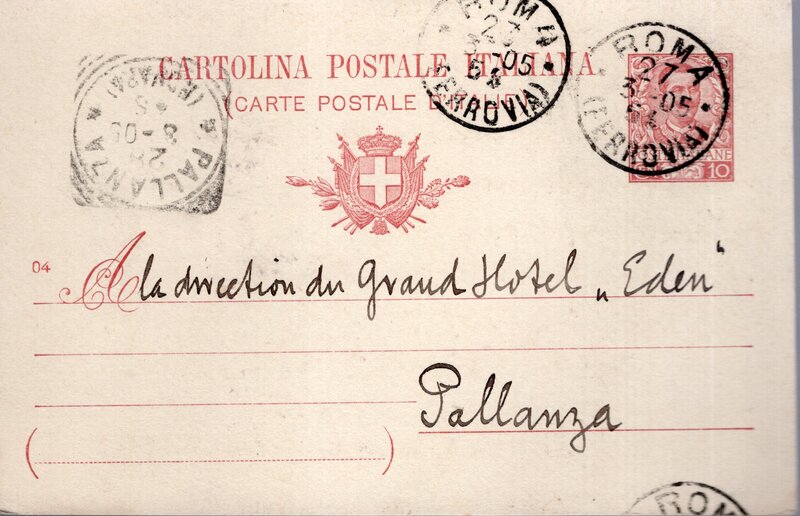 CARTOLINA POSTALE ITALIANA
(CARTE POSTALE D'ITALIE)
ROMA
27
3-05
(FERROVIA)
ROMA
27
3-05
(FERROVIA)
PALLANZA
(NOVARA)
28
3-05
10
04
A la direction du Grand Hotel „Eden“
Pallanza
ROM